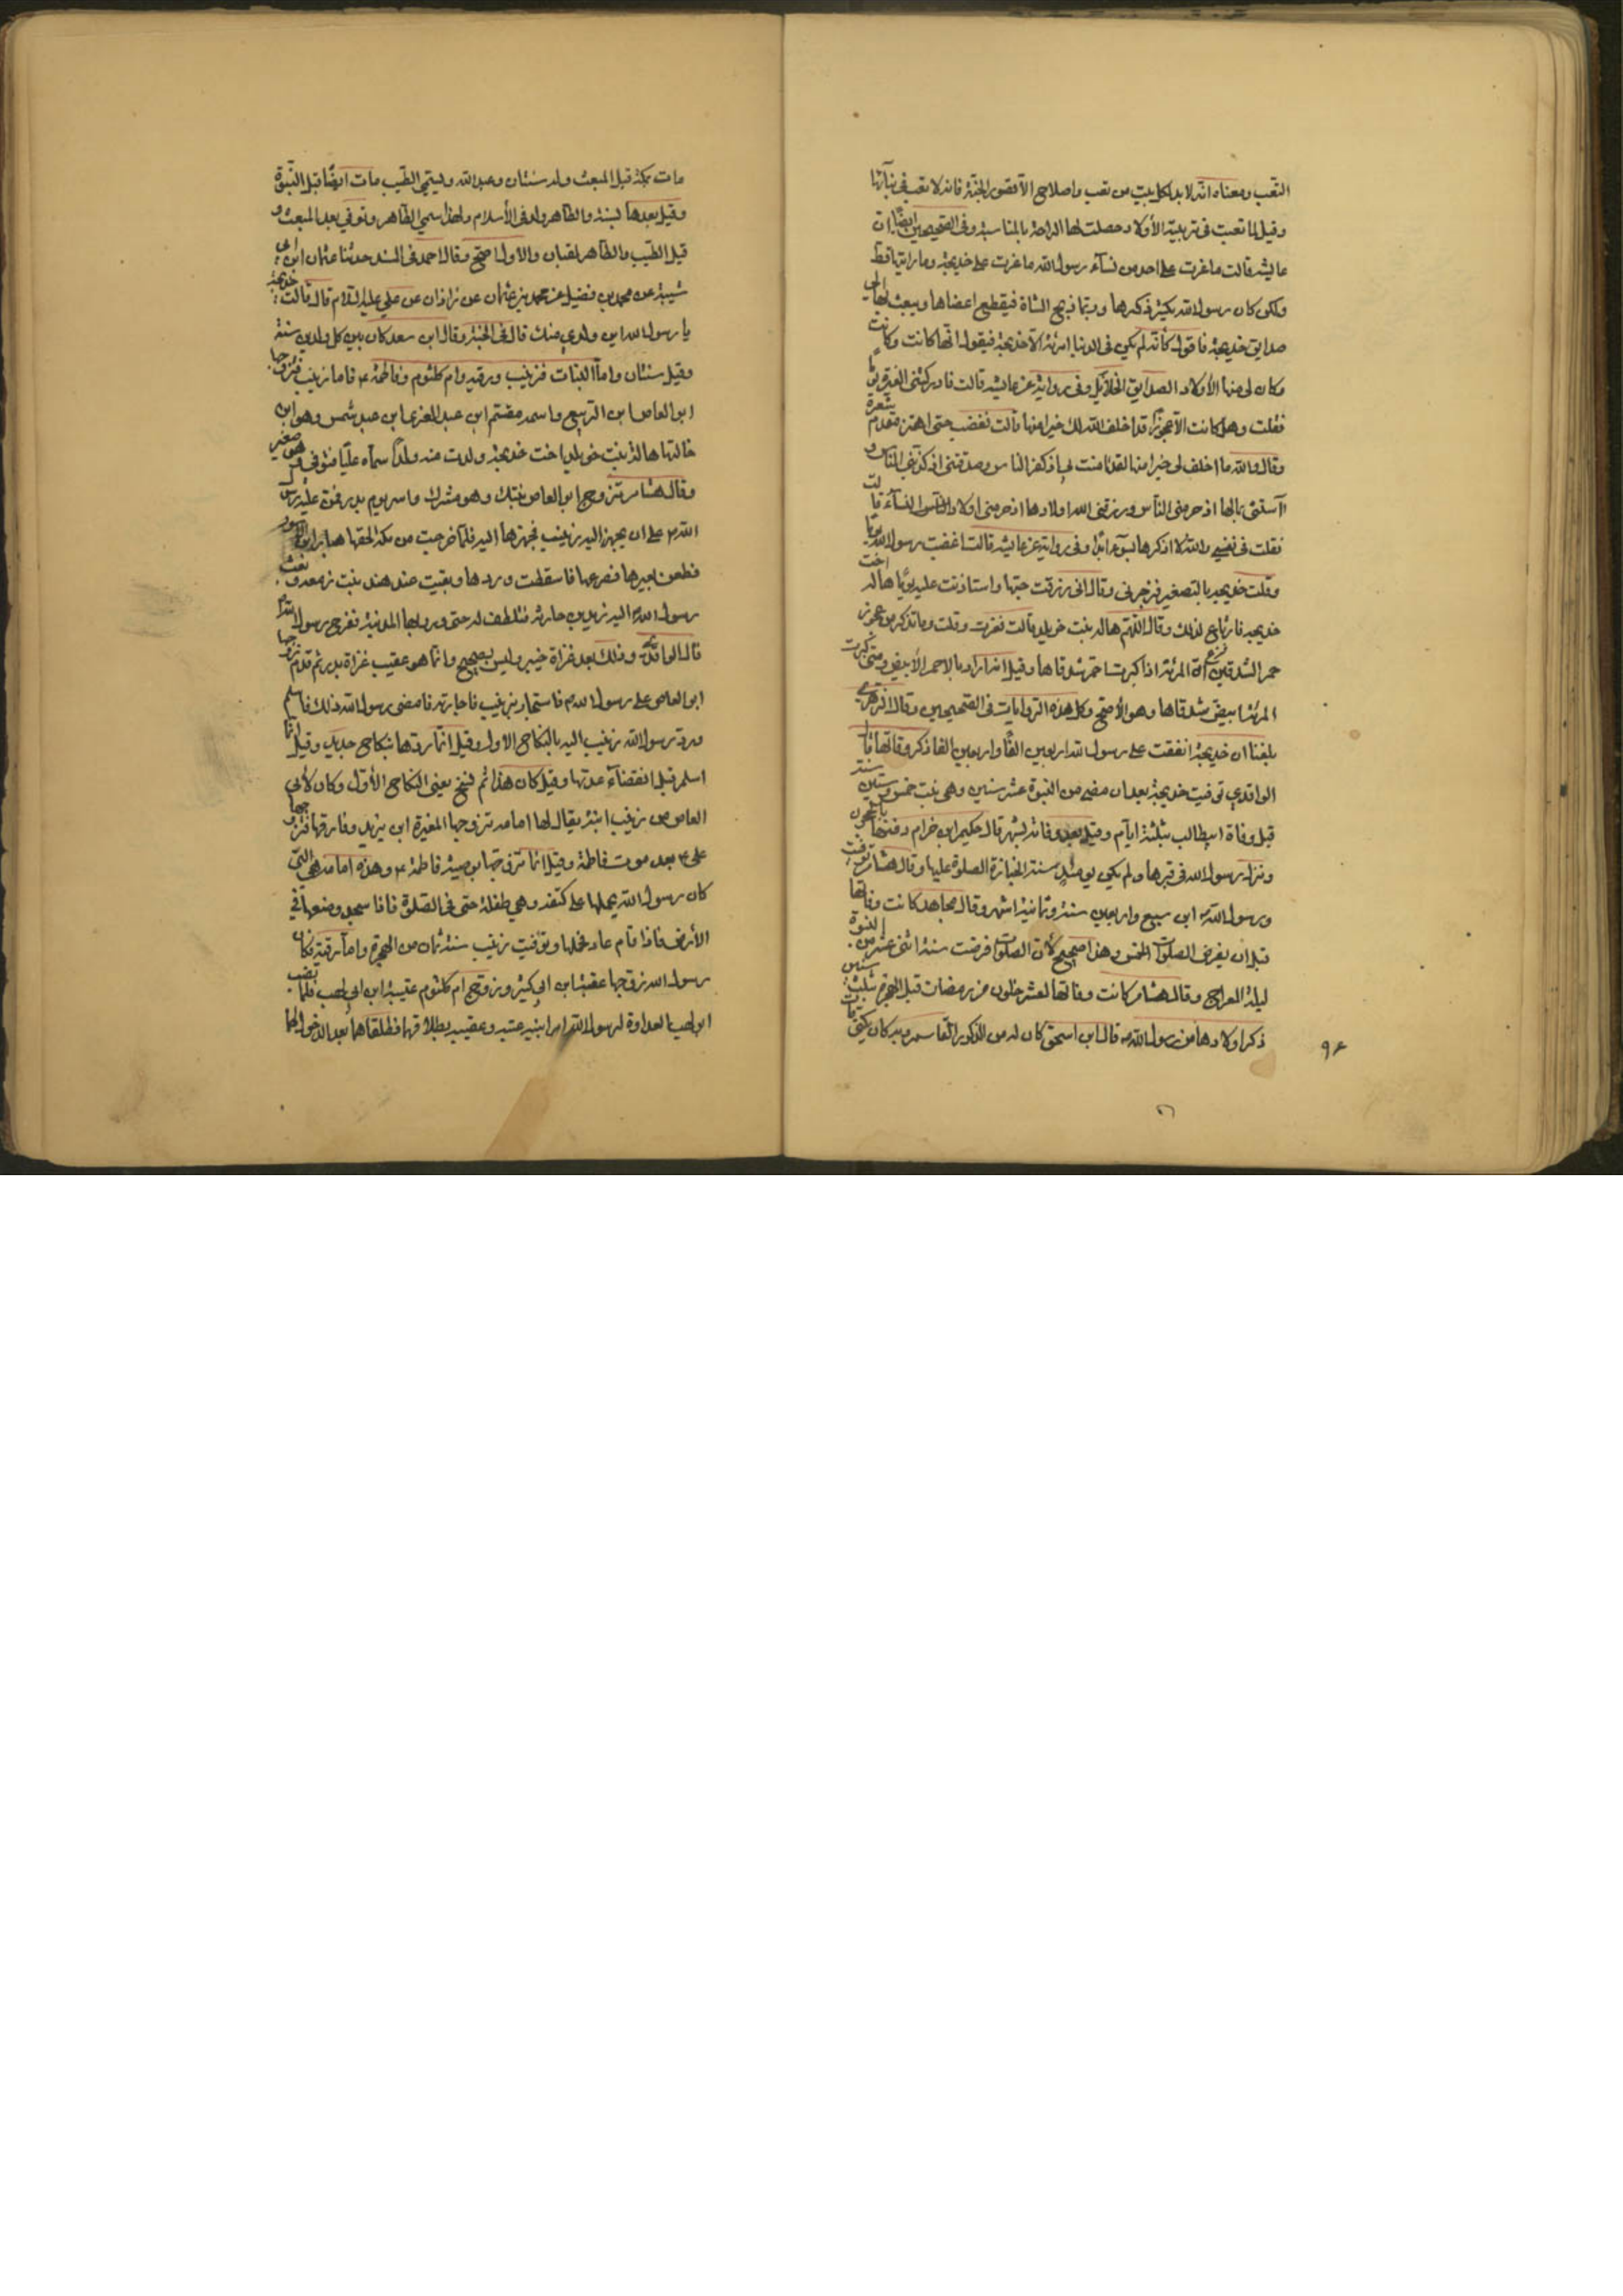 التعب ومعناه انه لا بد لكل بيت من تعب واصلاح الا قصور الجنة فانه لا تعب في بنائها
وقيل لما تعبت في تربية الأولاد حصلت لها الراحة بالمناسبة وفى الصحيحين ايضا ان
عايشه قالت ما غرت على احد من نسآء رسول الله ما غرت على خديجة وما رايتها قط
ولكن كان رسول الله يكثر ذكرها وربما ذبح الشاة فيقطع اعضاها ويبعث بها الى
صدايق خديجة فاقول كأنه لم يكن فى الدنيا امرئة الا خديجة فيقول انها كانت وكانت
وكان لى منها الأولاد الصدايق الخلائل وفى رواية عن عايشه قالت فادركتنى الغيرة يوما
فقلت وهل كانت الا عجوزًا قد اخلف الله لك خيرا منها قالت فغضب حتى اهتز مقدم شعره
وقال والله ما اخلف لى خيرا منها لقد امنت بى اذ كفر الناس وصدقتنى اذ كذبنى الناس و
آستنى بمالها اذ حرمنى الناس ورزقنى الله اولادها اذ حرمنى اولاد النسآء قالت
فقلت فى نفسى والله لا اذكرها بسوء ابدا وفى رواية عن عايشه قالت اغضبت رسول الله يوما
وقلت خديجه بالتصغير فزجرنى وقال انى رزقت حبها واستاذنت عليه يومًا هاله اخت
خديجه فارتاع لذلك وقال اللهم هاله بنت خويلد قالت فغرت وقلت وما تذكر من عجوز
حمر الشدقين لان المرئة اذا كبرت احمر شدقاها وقيل انه اراد بالاحمر الأبيض ومتى كبرت
المرئة ابيض شدقاها وهو الأصح وكل هذه الروايات فى الصحيحين وقال الزهرى
بلغنا ان خديجة انفقت على رسول الله اربعين الفًا واربعين الفا ذكر وفاتها قال
الواقدي توفيت خديجة بعد ان مضى من النبوة عشر سنين وهى بنت خمس وستين سنة
قبل وفاة ابيطالب بثلثة ايآم وقيل بعد وفاته بشهر قال حكيم ابن خزام دفنتها بالحجون
ونزل رسول الله فى قبرها ولم يكن يومئذ سنة الجنازة الصلوة عليها وقال هشام توفيت
ورسول الله ابن سبع واربعين سنة وثمانية اشهر وقال مجاهد كانت وفاتها
قبل ان يفرض الصلوات الخمس وهذا صحيح لأن الصلوات فرضت سنة اثنى عشر من النبوة
ليلة المعراج وقال هشام كانت وفاتها لعشر خلون من رمضان قبل الهجرة بثلث سنين
ذكر اولادها من رسول الله قال ابن اسحق كان له من الذكور القاسم وبه كان يكنى
٩۶
مات بمكة قبل المبعث وله سنتان وعبد الله ويسمى الطيب مات ايضًا قبل النبوة
وقيل بعدها بسنة والطاهر ولد فى الأسلام ولهذا سمي الطاهر وتوفي بعد المبعث و
قيل الطيب والطاهر لقبان والأول اصح وقال احمد فى المسند حدثنا عثمان ابن ابى
شيبة عن محمد بن فضيل عن محمد بن عثمان عن زاذان عن علي عليه السلام قال قالت خديجة
يا رسول الله اين ولدي منك قال فى الجنة وقال ابن سعد كان بين كل ولدين سنة
وقيل سنتان واما البنات فزينب ورقيه وام كلثوم وفاطمة ع فاما زينب فتزوجها
ابو العاص ابن الربيع واسمه مقسم ابن عبد العزى ابن عبد شمس وهو ابن
خالتها هالة بنت خويلد اخت خديجة ولدت منه ولدًا سماه عليًا فتوفى وهو صغير
وقال هشام تزوج ابو العاص بنتك وهو مشرك واسر يوم بدر فمن عليه رسول
الله ص على ان يجهز اليه زينب فجهزها اليه فلما خرجت من مكة لحقها هبار ابن الاسود
فطعن بعيرها فصرعها فاسقطت وردها وبقيت عند هند بنت زمعه وبعث
رسول الله اليه زيد بن حارثة فتلطف له حتى ورد بها المدينة ففرح رسول الله
قال الواقدي وذلك بعد غزاة خيبر وليس بصحيح وانما هو عقيب غزاة بدر ثم قدم زوجها
ابو العاص على رسول الله ص فاستجار بزينب فاجارته فامضى رسول الله ذلك فاسلم
ورد رسول الله زينب اليه بالنكاح الاول وقيل انما ردها بنكاح جديد وقيل انما
اسلم قبل انقضآء عدتها وقيل كان هذا ثم نسخ يعنى النكاح الأول وكان لأبى
العاص من زينب ابنة يقال لها امامه تزوجها المغيرة ابن يزيد وفارقها فتزوجها
على ع بعد موت فاطمة وقيل انما تزوجها بوصية فاطمة ع وهذه امامه هي التى
كان رسول الله يحملها على كتفه وهي طفلة حتى فى الصلوة فاذا سجد وضعها في
الأرض فاذا قام عاد يحملها وتوفيت زينب سنة ثمان من الهجرة واما رقية فكان
رسول الله زوجها عقبة ابن ابى كثير وزوج ام كلثوم عتيبة ابن ابى لهب فلما نصب
ابو لهب العداوة لرسول الله امر ابنيه عتبه وعتيبه بطلاقهما فطلقاهما بعد الدخول بهما